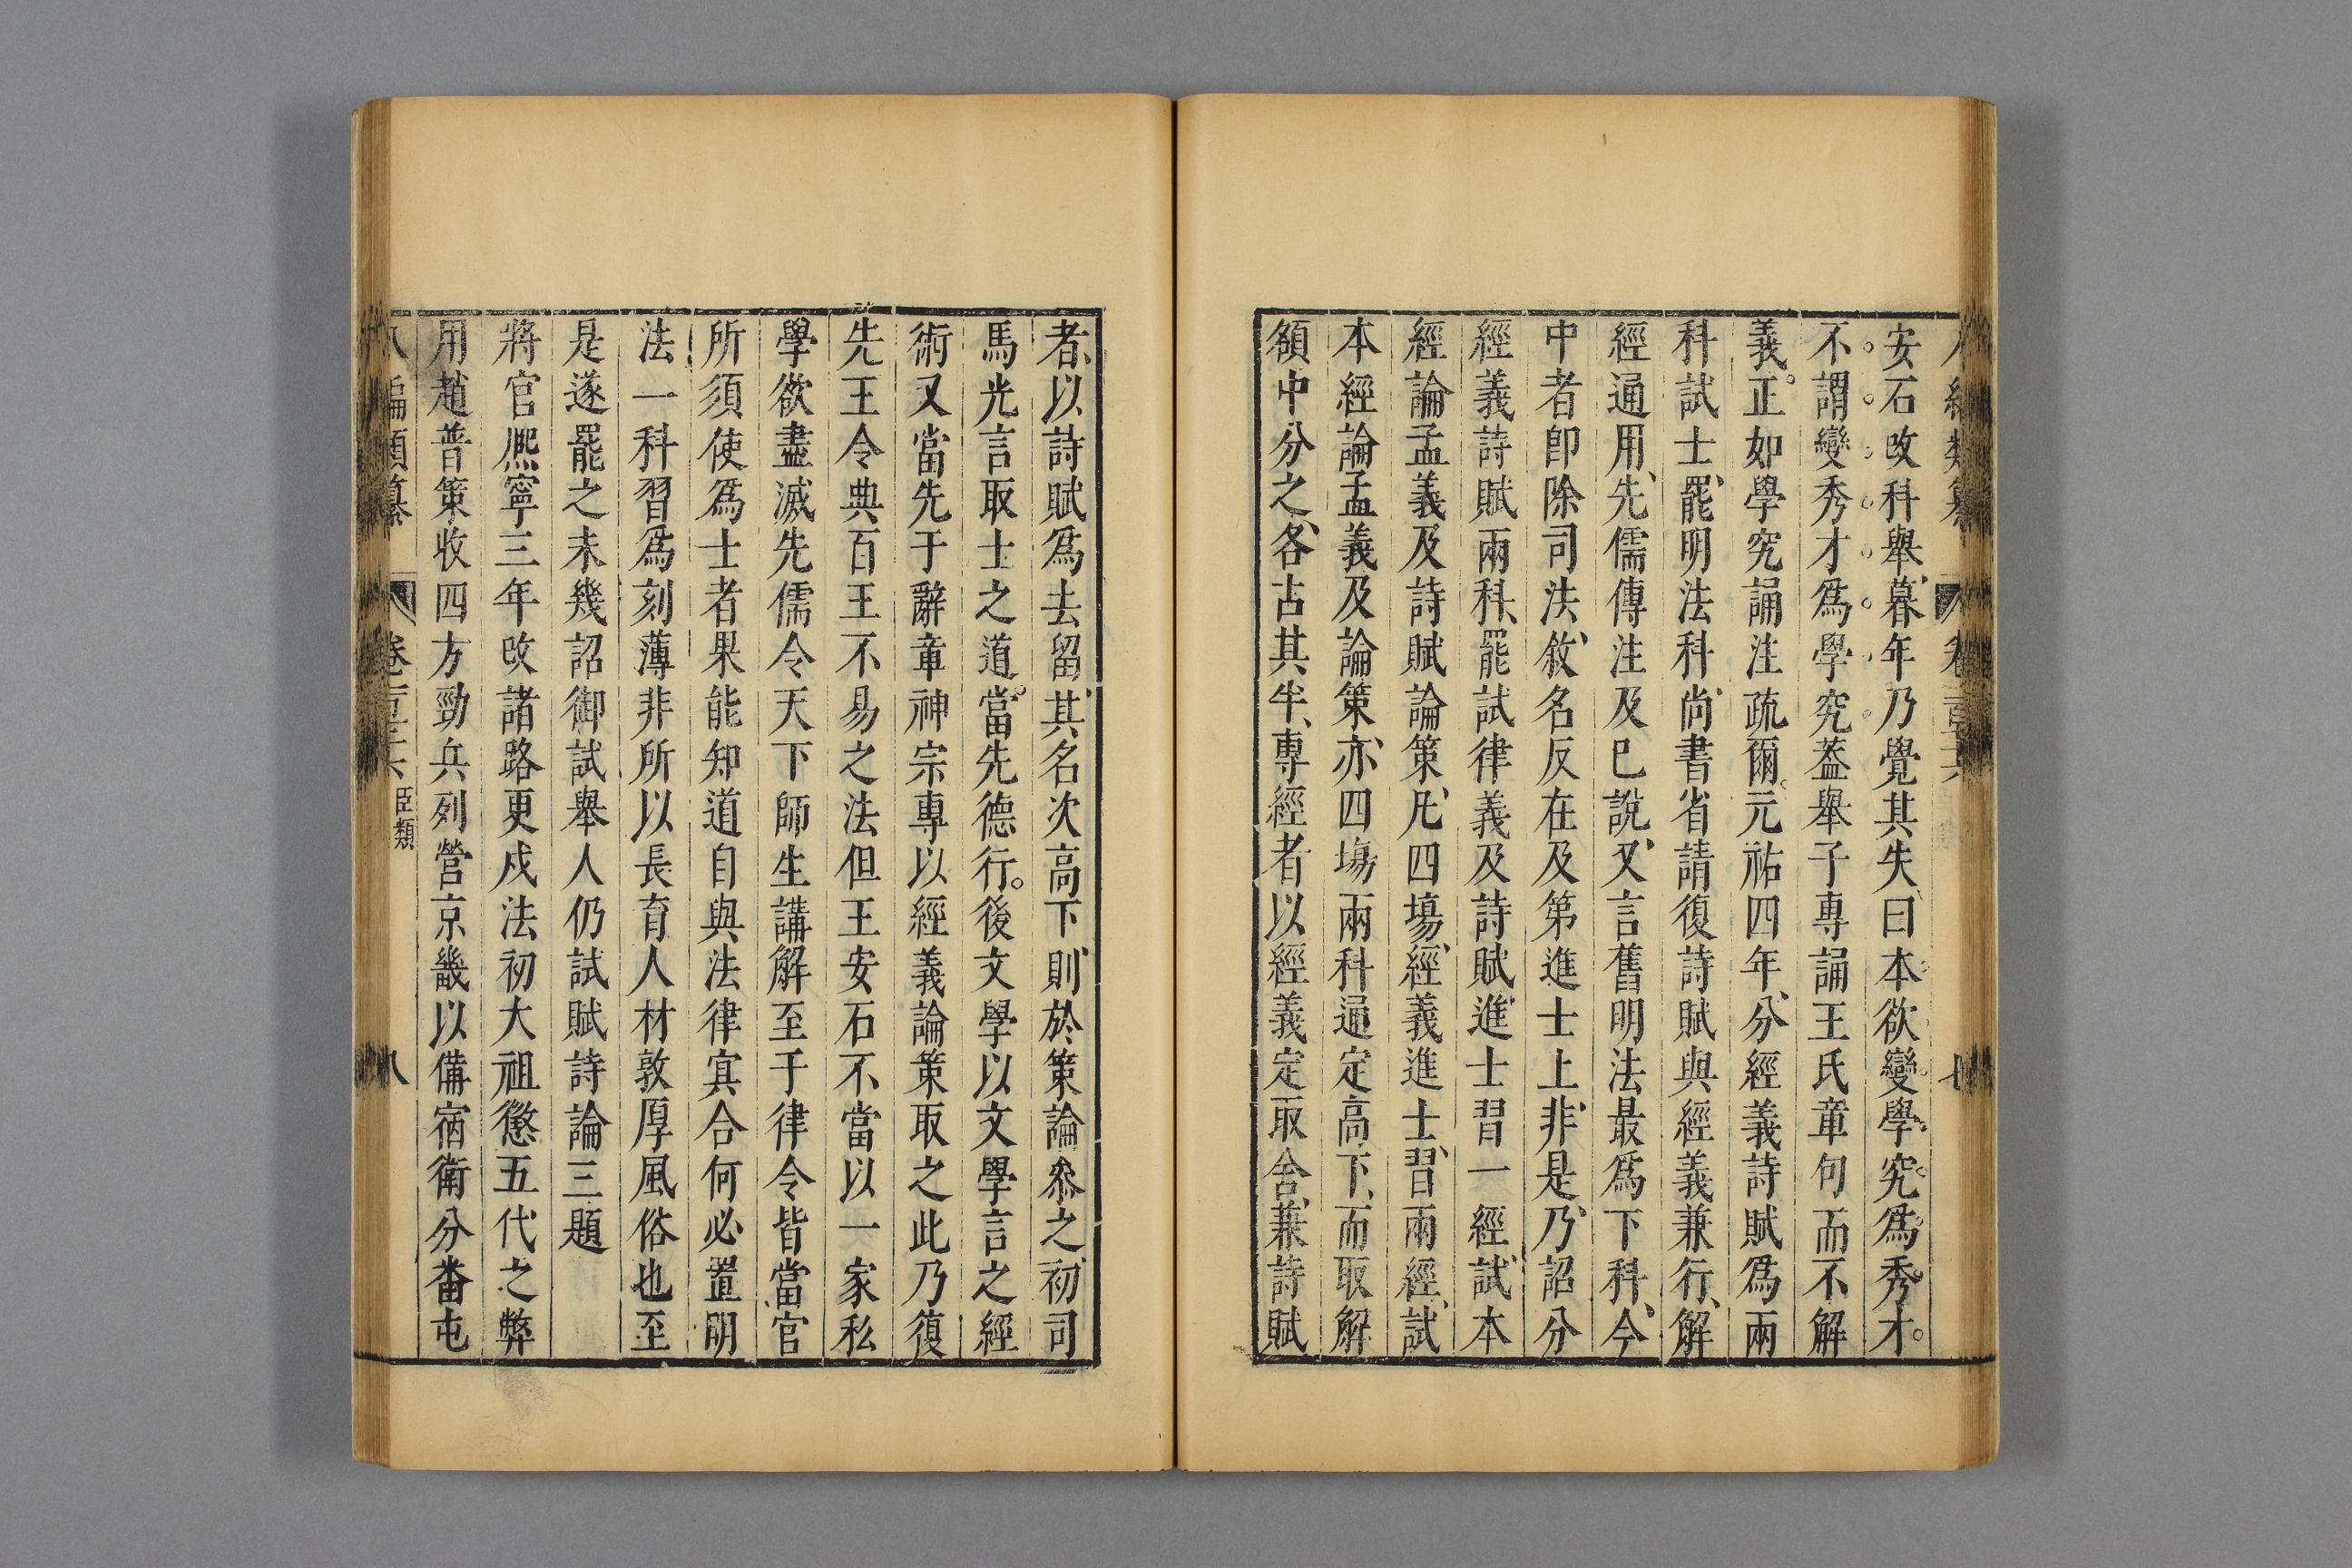 安石改科舉、暮年乃覺其失、曰本欲變學究爲秀才。
不謂變秀才爲學究葢舉子專誦王氏章句而不解
義。正如學究誦注疏爾。元祐四年、分經義詩賦爲兩
科試士、罷明法科、尚書省請復詩賦與經義兼行、解
經通用、先儒傳注及已說、又言舊明法最爲下科、今
中者卽除司法、敘名反在及第進士上、非是、乃詔分
經義詩賦兩科、罷試律義及詩賦進士習一經、試本
經論孟義及詩賦論策、凡四塲、經義進士、習兩經、試
本經論孟義及論策、亦四塲兩科通定高下、而取解
額中分之、各占其半、專經者以經義定取舍、兼詩賦
者、以詩賦爲去留、其名次高下、則於策論叅之、初司
馬光言取士之道。當先德行。後文學以文學言之經
術又當先于辭章神宗專以經義論策取之此乃復
先王令典百王不易之法但王安石不當以一家私
學欲盡滅先儒令天下師生講解至于律令皆當官
所須使爲士者果能知道自與法律冥合何必置明
法一科習爲刻薄非所以長育人材敦厚風俗也至
是遂罷之未幾詔御試舉人仍試賦詩論三題
將官熈寧三年改諸路更戍法初大祖懲五代之弊
用趙普策收四方勁兵列營京畿以備宿衛分番屯
八編類纂 卷百三六 臣類 八